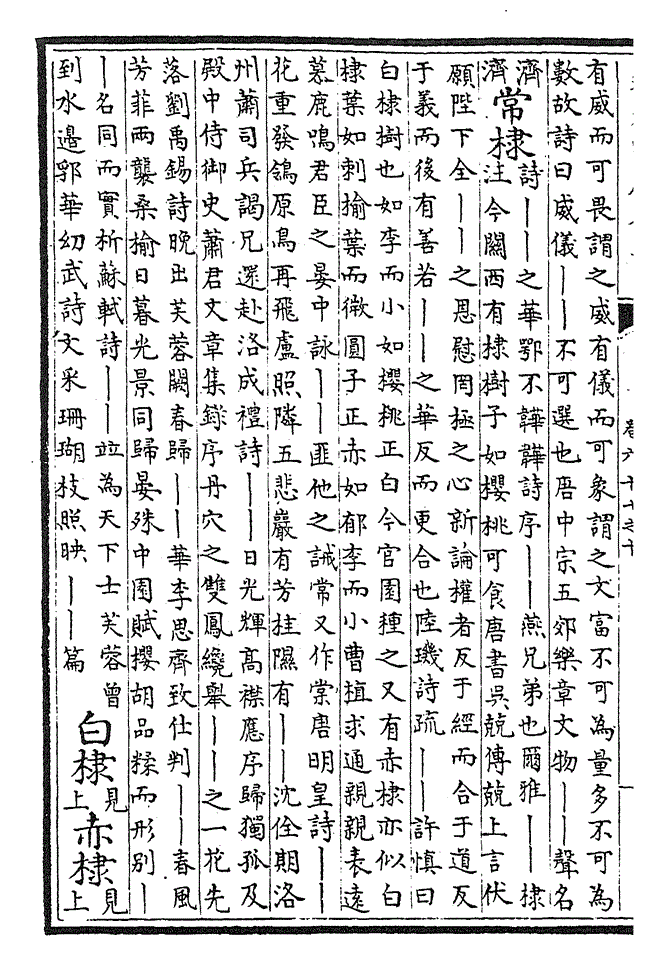 有威而可畏謂之威有儀而可象謂之文富不可為量多不可為
數故詩曰威儀｜｜不可選也唐中宗五郊樂章文物｜｜聲名
濟濟
常棣
詩｜｜之華鄂不韡韡詩序｜｜燕兄弟也爾雅｜｜棣
注今關西有棣樹子如櫻桃可食唐書吳兢傳兢上言伏
願陛下全｜｜之恩慰罔極之心新論權者反于經而合于道反
于義而後有善若｜｜之華反而更合也陸璣詩疏｜｜許慎曰
白棣樹也如李而小如櫻桃正白今官園種之又有赤棣亦似白
棣葉如刺榆葉而微圓子正赤如郁李而小曹植求通親親表遠
慕鹿鳴君臣之晏中詠｜｜匪他之誡常又作棠唐明皇詩｜｜
花重發鴒原鳥再飛盧照隣五悲巖有芳桂隰有｜｜沈佺期洛
州蕭司兵謁兄還赴洛成禮詩｜｜日光輝高襟應序歸獨孤及
殿中侍御史蕭君文章集錄序丹穴之雙鳳纔舉｜｜之一花先
落劉禹錫詩晚出芙蓉闕春歸｜｜華李思齊致仕判｜｜春風
芳菲兩襲桑榆日暮光景同歸晏殊中園賦攖胡品糅而形別｜
｜名同而實析蘇軾詩｜｜竝為天下士芙蓉曾
到水邊郭華幼武詩文采珊瑚枝照映｜｜篇
白棣
見上
赤棣
見上